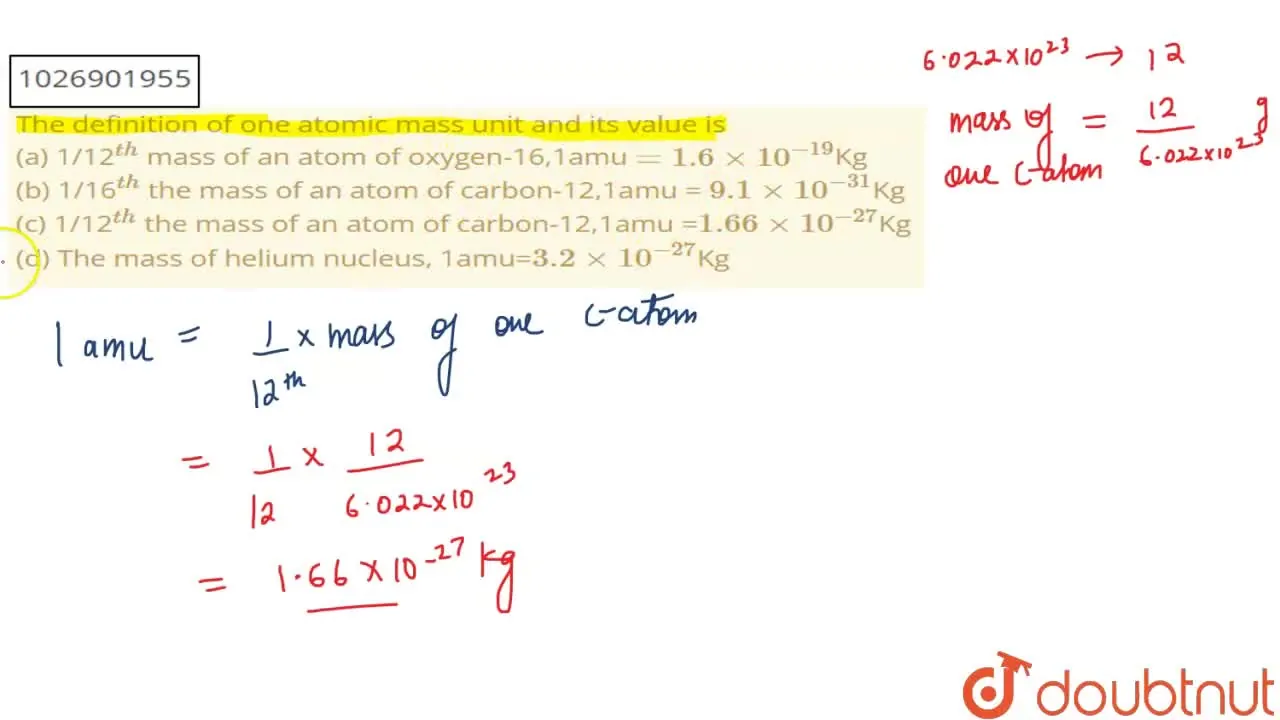 1026901955
The definition of one atomic mass unit and its value is
(a) 1/12^th mass of an atom of oxygen-16,1amu = 1.6 × 10^−19Kg
(b) 1/16^th the mass of an atom of carbon-12,1amu = 9.1 × 10^−31Kg
(c) 1/12^th the mass of an atom of carbon-12,1amu =1.66 × 10^−27Kg
(d) The mass of helium nucleus, 1amu=3.2 × 10^−27Kg
6.022×10^23 → 12
mass of one C-atom = 12 / 6.022×10^23 g
1 amu = 1/12^th × mass of one C-atom
= 1/12 × 12 / 6.022×10^23
= 1.66 × 10^-27 kg
doubtnut